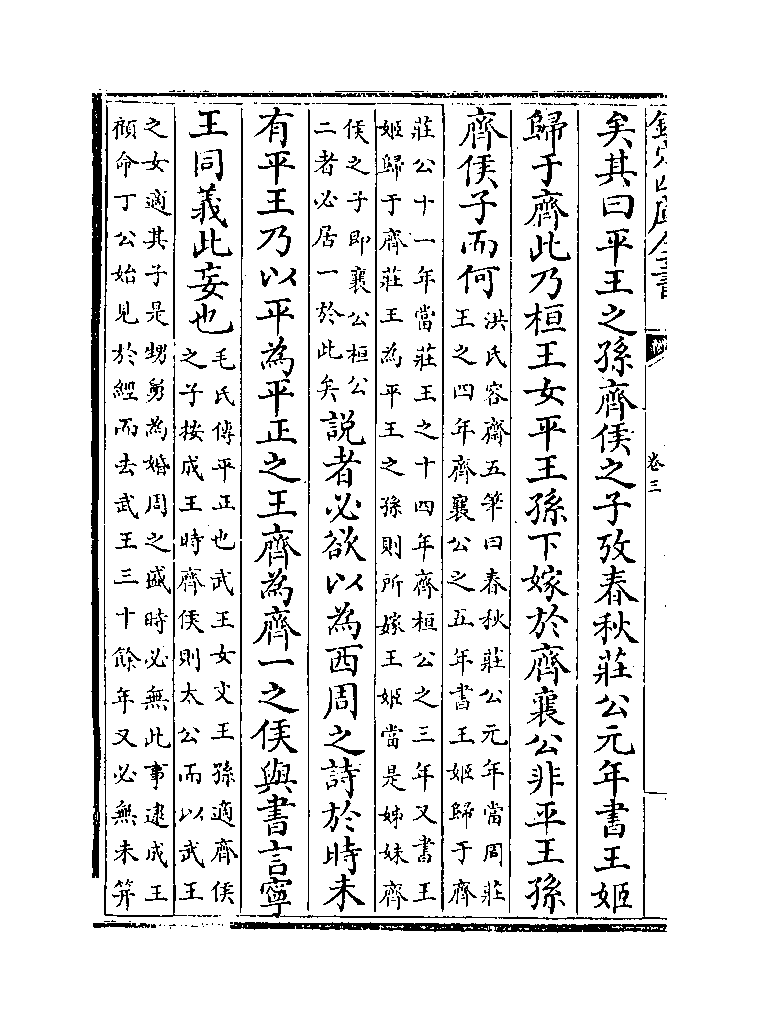 欽定四庫全書
卷三
矣其曰平王之孫齊侯之子攷春秋莊公元年書王姬
歸于齊此乃桓王女平王孫下嫁於齊襄公非平王孫
齊侯子而何
洪氏容齋五筆曰春秋莊公元年當周莊
王之四年齊襄公之五年書王姬歸于齊
莊公十一年當莊王之十四年齊桓公之三年又書王
姬歸于齊莊王為平王之孫則所嫁王姬當是姊妹齊
侯之子即襄公桓公
二者必居一於此矣
說者必欲以為西周之詩於時未
有平王乃以平為平正之王齊為齊一之侯與書言寧
王同義此妄也
毛氏傳平正也武王女文王孫適齊侯
之子按成王時齊侯則太公而以武王
之女適其子是甥舅為婚周之盛時必無此事逮成王
顧命丁公始見於經而去武王三十餘年又必無未筓